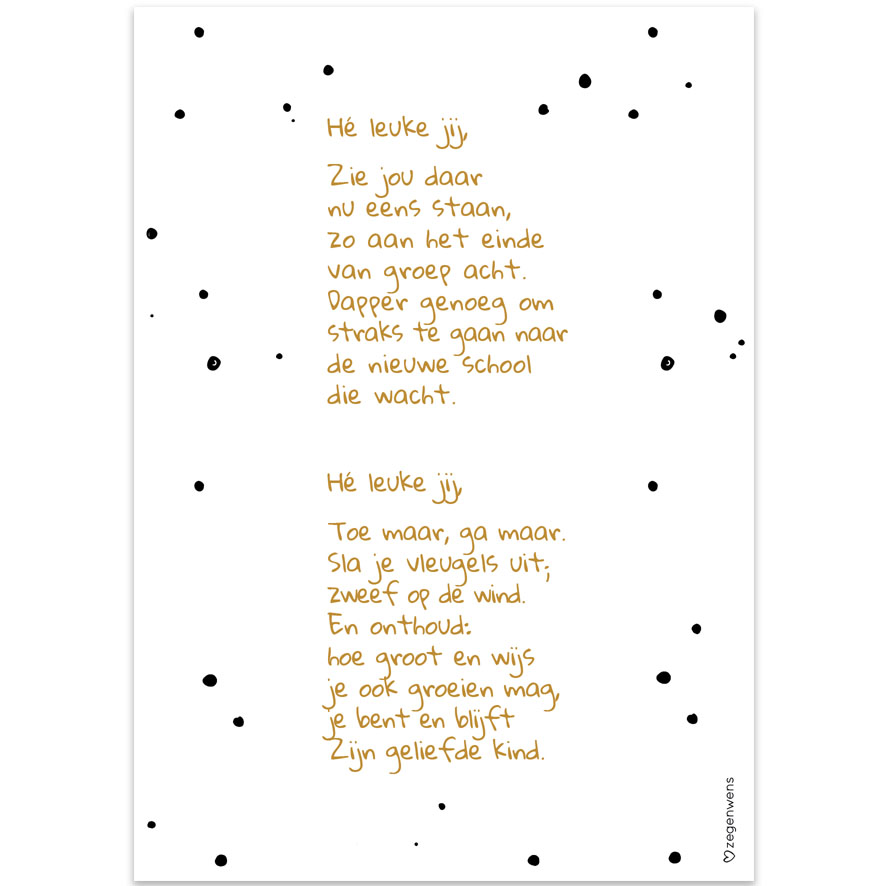 Hé leuke jij,
Zie jou daar
nu eens staan,
zo aan het einde
van groep acht.
Dapper genoeg om
straks te gaan naar
de nieuwe school
die wacht.
Hé leuke jij,
Toe maar, ga maar.
Sla je vleugels uit;
zweef op de wind.
En onthoud:
hoe groot en wijs
je ook groeien mag,
je bent en blijft
Zijn geliefde kind.
zegenwens